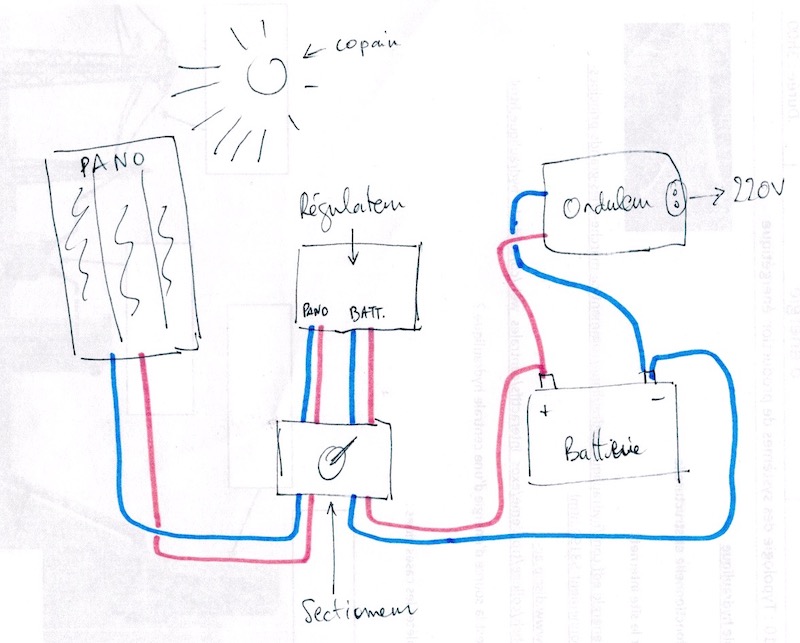 copain
PANO
Régulateur
PANO BATT.
Onduleur
220V
+
−
Batterie
Sectionneur